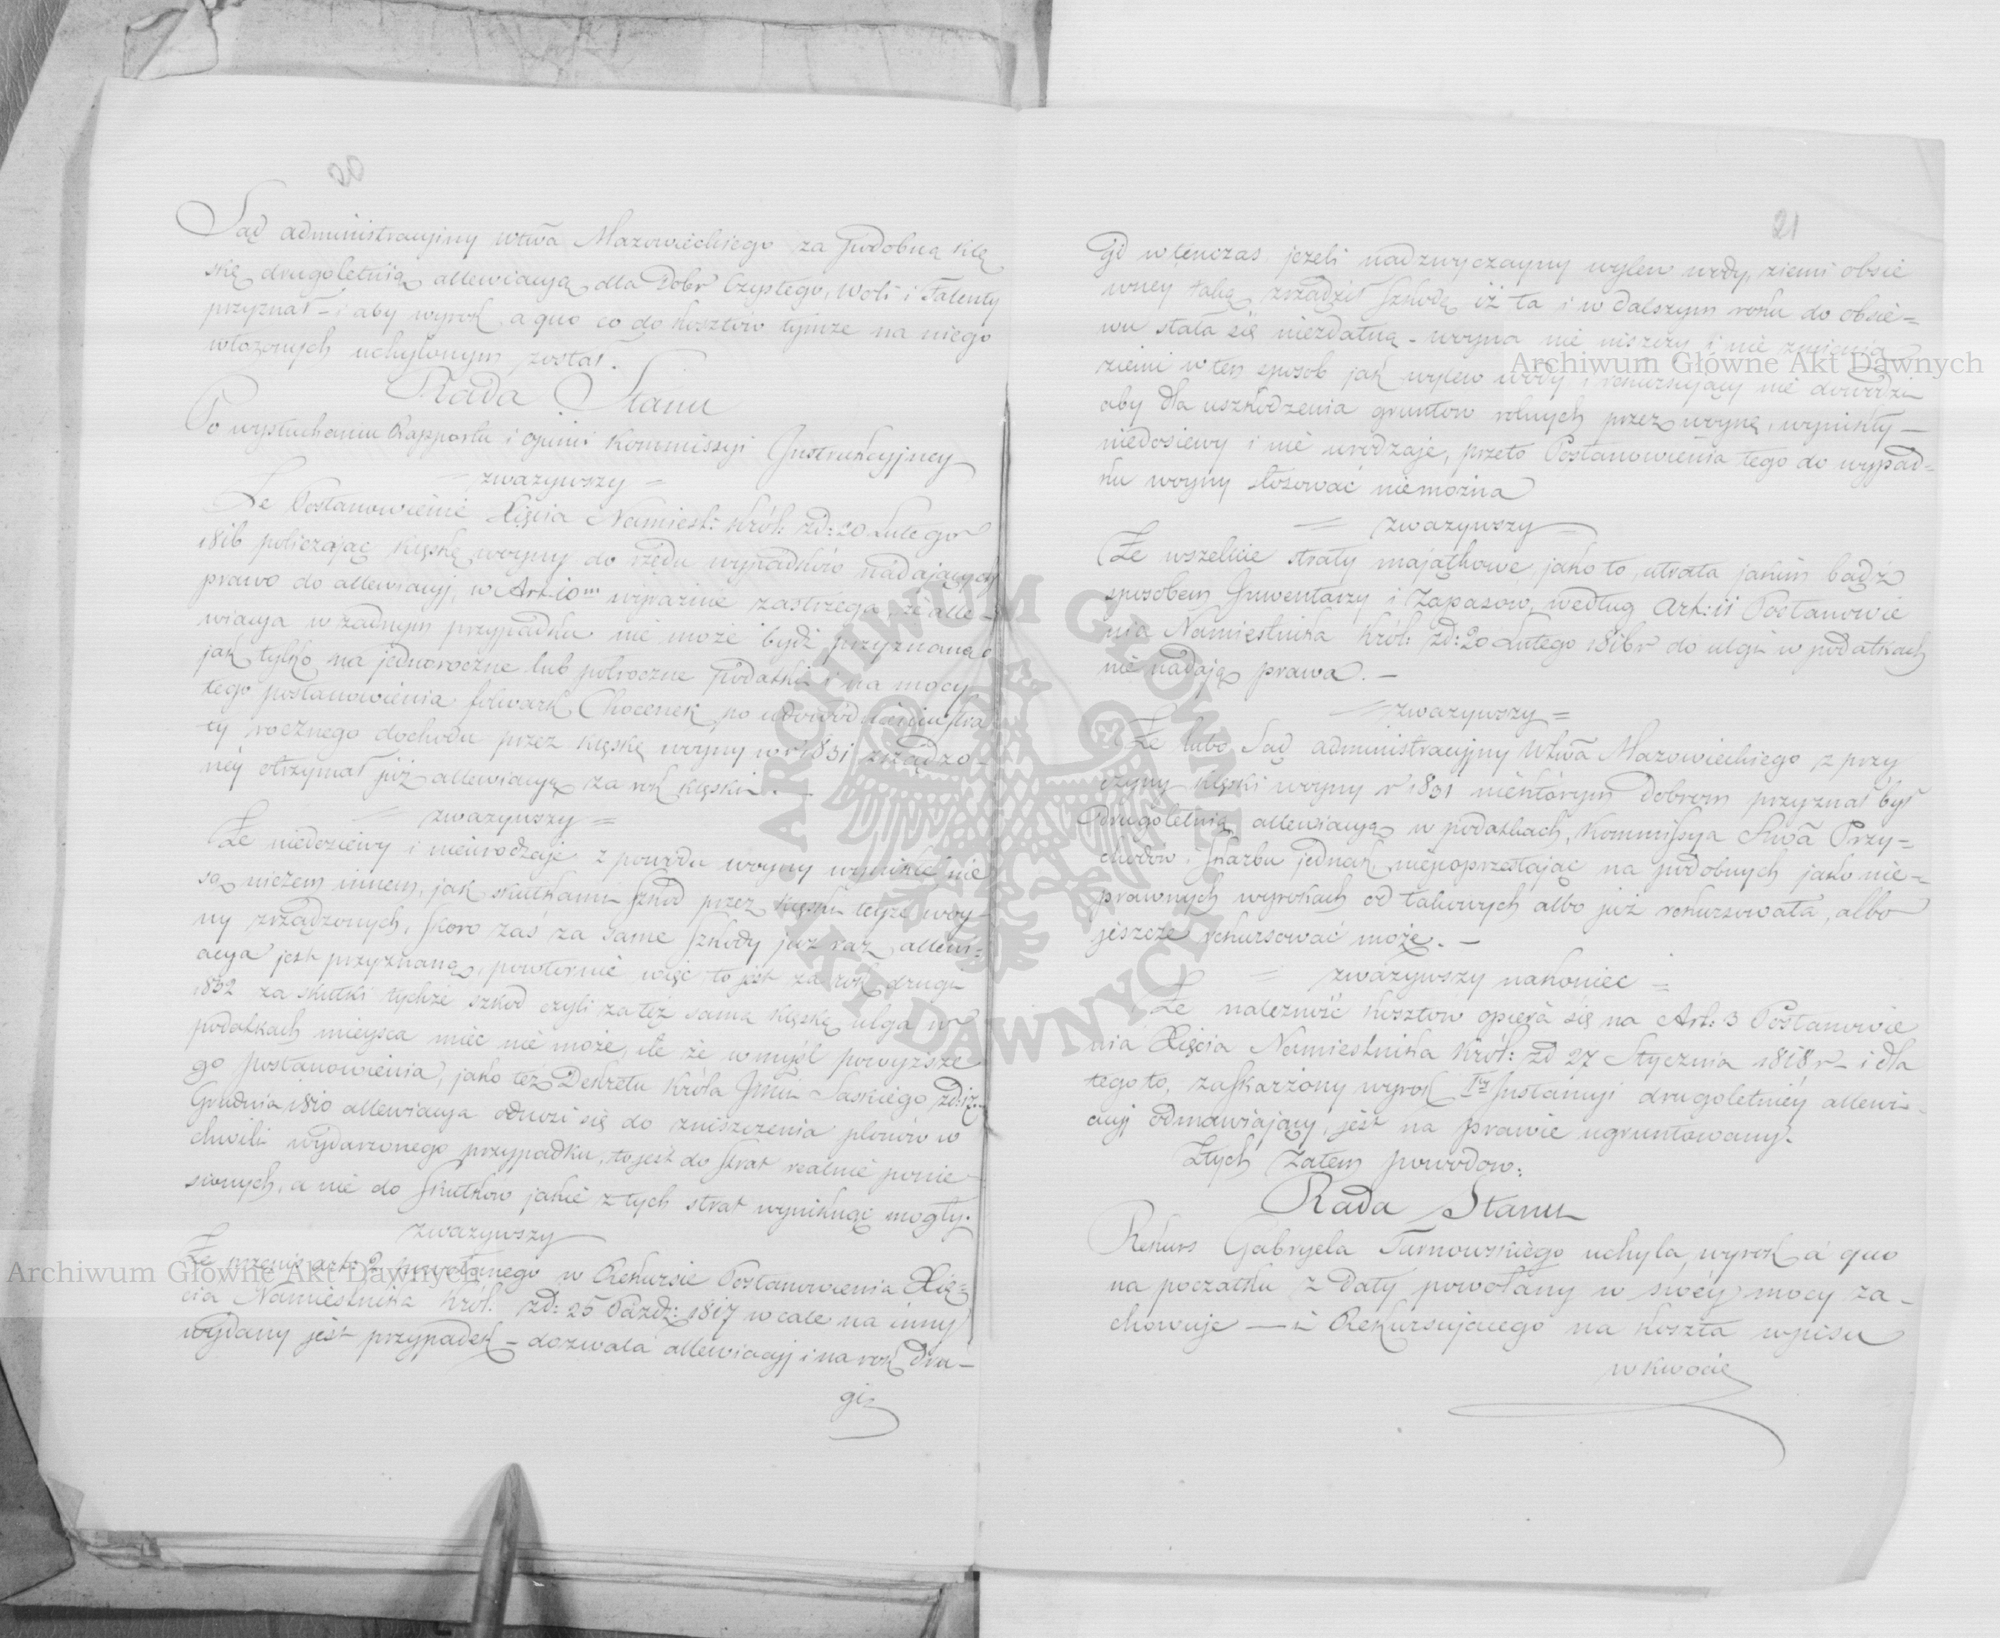 20
Sąd administracyjny wtwa Mazowieckiego za podobną klę
skę drugoletnią allewiacyą dla Dobr Czystego, Woli i Falenty
przyznał – i aby wyrok a quo co do kosztów tymże na niego
włożonych uchylonym został.
Rada Stanu
Po wysłuchaniu Rapportu i opinii Kommissyi Instrukcyjney
zważywszy =
Że Postanowienie Xięcia Namiest: Król: zd: 20 Lutego
1816 policzając klęskę woyny do rzędu wypadków nadających
prawo do allewiacyi, w Art 10m wyraźnie zastrzega, że alle-
wiacya w żadnym przypadku nie może bydź przyznaną
jak tylko na jednoroczne lub półroczne podatki i na mocy
tego postanowienia folwark Chocenek po udowodnieniu stra
ty rocznego dochodu przez klęskę woyny w r 1831 zrządzo-
néy otrzymał już allewiacyą za rok klęski. –
= zważywszy =
Że niedosiewy i nieurodzaje z powodu woyny wynikłe nie
są niczem innem, jak skutkami szkod przez klęski teyże woy
ny zrządzonych, skoro zaś za same szkody już raz allewi-
acya jest przyznaną, powtórnie więc to jest za rok drugi
1832 za skutki tychże szkod czyli za też samą klęskę ulga w
podatkach mieysca mieć nie może, ile że w myśl powyższe
go postanowienia, jako też Dekretu Króla Jmci Saskiego zd: 17
Grudnia 1810 allewiacya odnosi się do zniszczenia plonów w
chwili wydarzonego przypadku, to jest do strat realnie ponie
sionych, a nie do skutków jakie z tych strat wyniknąć mogły.
zważywszy
Że przepis art: 2 powołanego w Rekursie Postanowienia Xię=
cia Namiestnika Król: zd: 25 Paźdz: 1817 wcale na inny
wydany jest przypadek – dozwala allewiacyi i na rok dru–
gi
21
gi wtenczas jeżeli nadzwyczayny wylew wody, ziemi obsie
wney taką zrządził szkodę iż ta i w dalszym roku do obsie=
wu stała się niezdatną – woyna nie niszczy i nie zmienia
ziemi w ten sposób jak wylew wody i rekursujący nie dowodzi
aby dla uszkodzenia gruntow rolnych przez woynę, wynikły –
niedosiewy i nie urodzaje, przeto Postanowienia tego do wypad=
ku woyny stosować niemożna
= zważywszy
Że wszelkie straty majątkowe jako to, utrata jakim bądź
sposobem Inwentarzy i Zapasow, według Art: 11 Postanowie
nia Namiestnika Król: zd: 20 Lutego 1816 r do ulgi w podatkach
nie nadają prawa. –
= zważywszy =
Że lubo Sąd administracyjny Wtwa Mazowieckiego z przy
czyny klęski woyny r 1831 niektórym Dobrom przyznał był
drugoletnią allewiacyą w podatkach, Kommissya Rwa Przy=
chodów i Skarbu jednak niepoprzestając na podobnych jako nie=
prawnych wyrokach od takowych albo już rekursowała, albo
jeszcze rekursować może. –
= zważywszy nakoniec =
Że należność kosztow opiera się na Art: 3 Postanowie
nia Xięcia Namiestnika Król: zd 27 Stycznia 1818 r – i dla
tego to, zaskarżony wyrok Iey Instancyi drugoletniéy allewi-
acyi odmawiający, jest na prawie ugruntowany.
Z tych zatem powodow:
Rada Stanu
Rekurs Gabryela Turnowskiego uchyla, wyrok a quo
na początku z daty powołany w swéy mocy za–
chowuje – i Rekursującego na koszta wpisu
w kwocie
Archiwum Główne Akt Dawnych
Archiwum Główne Akt Dawnych
ARCHIWUM GŁÓWNE AKT DAWNYCH